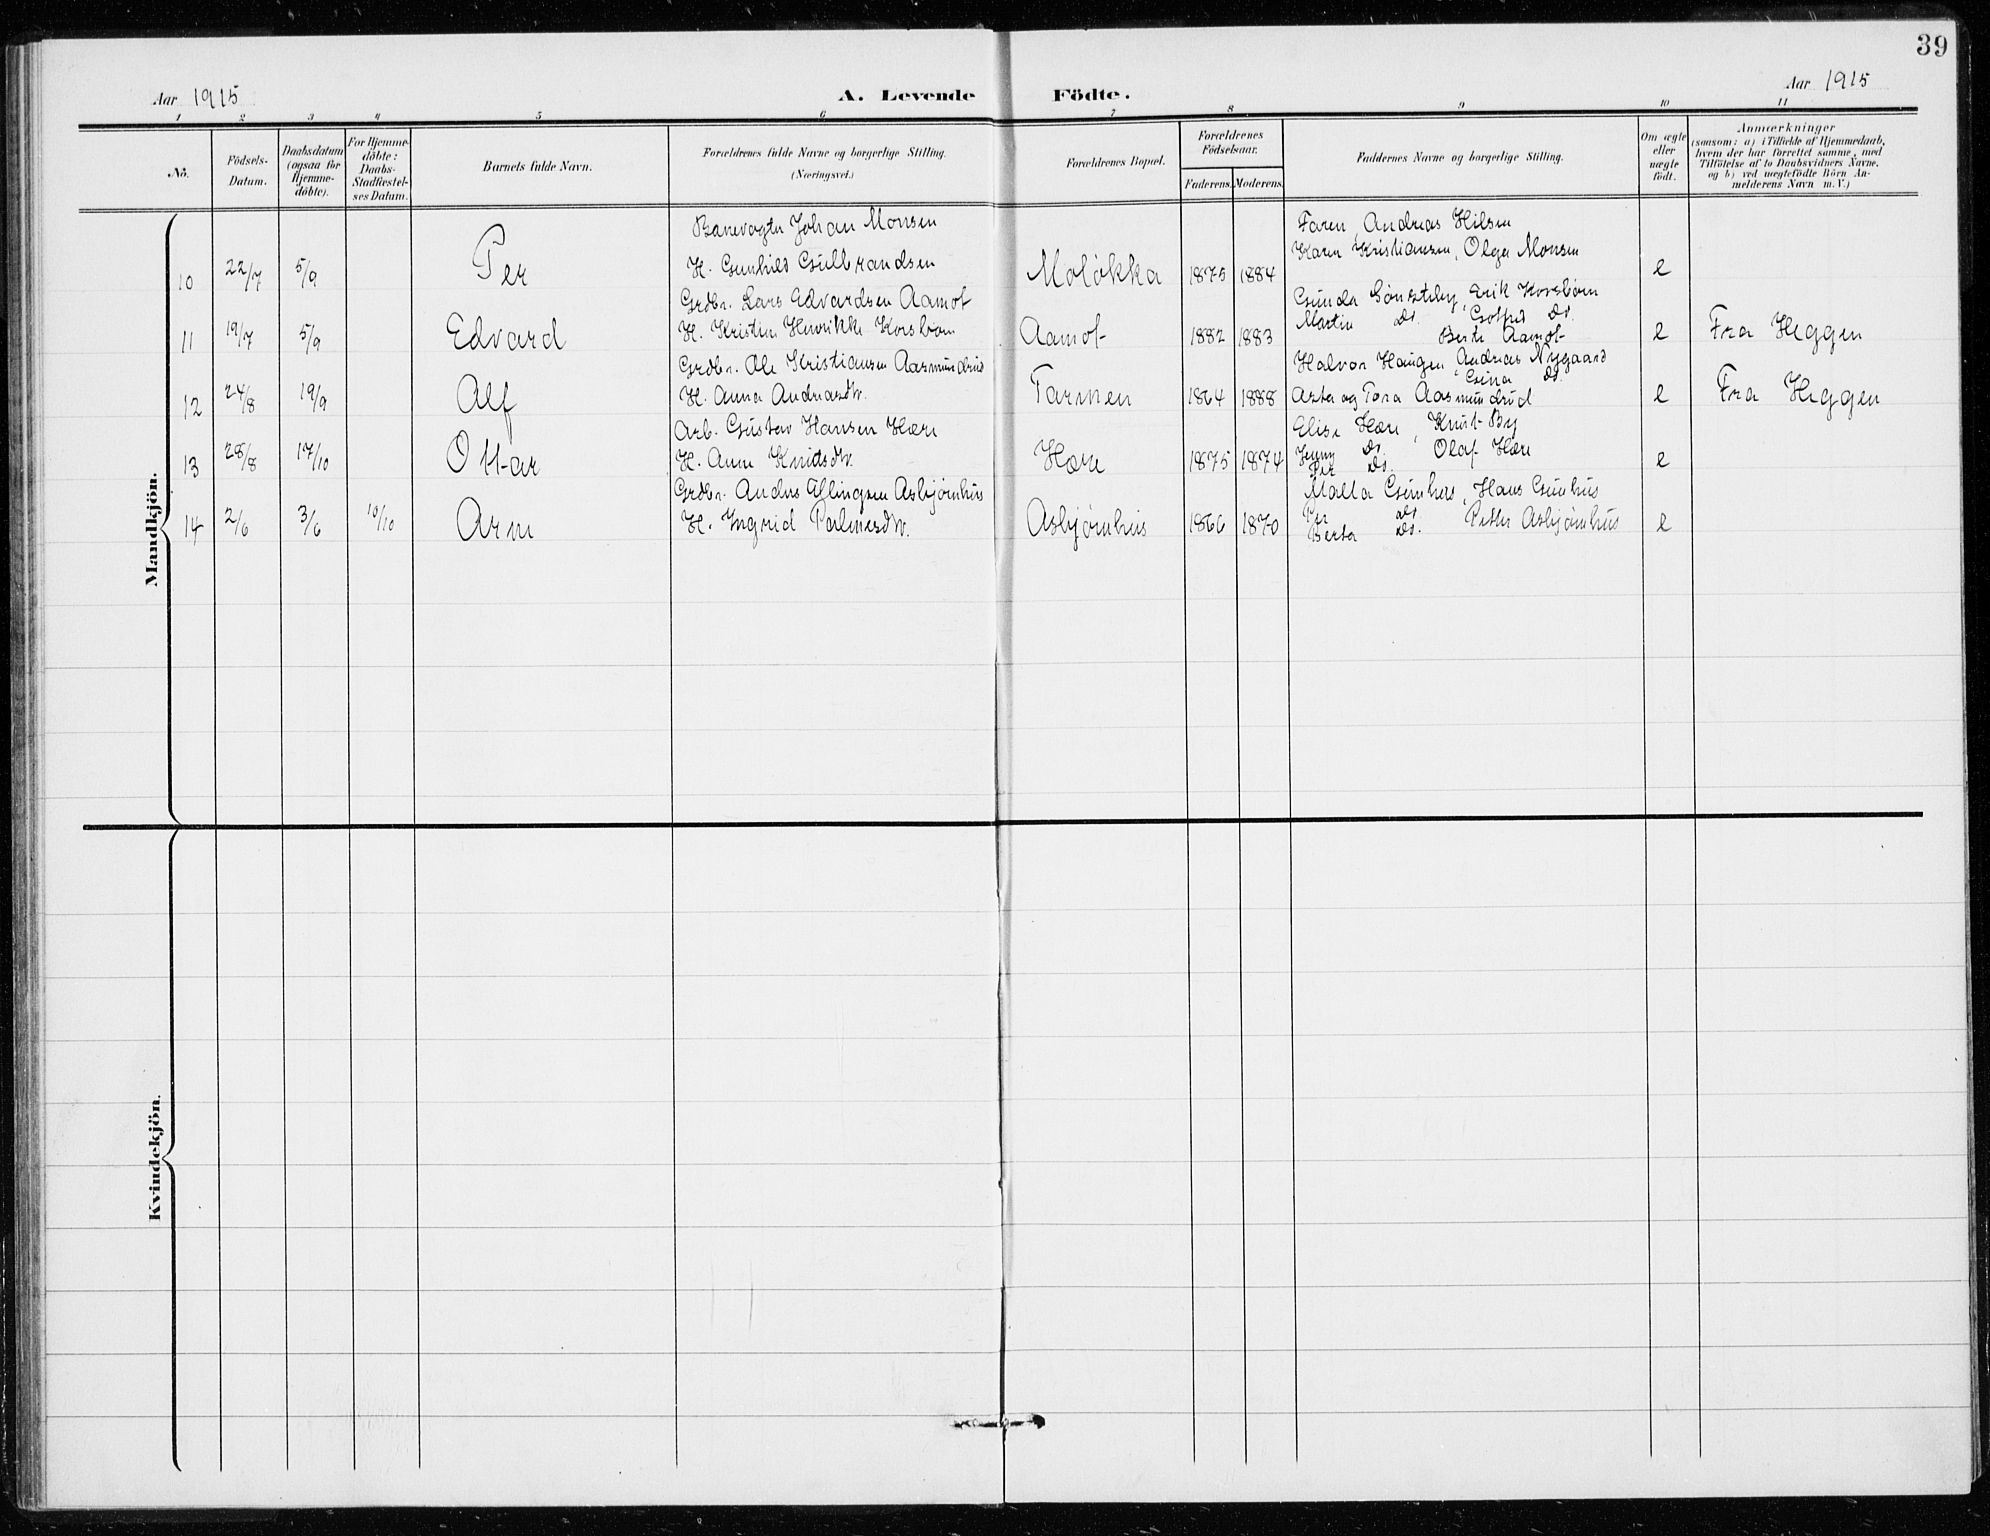 39
Aar 1915
A. Levende Födte.
Aar 1915
1 2 3 4 5 6 7 8 9 10 11
No.
Födsels-Datum.
Daabsdatum (ogsaa for Hjemme-döbte).
For Hjemme-döbte: Daabs-Stadfæstel-ses Datum.
Barnets fulde Navn.
Forældrenes fulde Navne og borgerlige Stilling.
(Næringsvei.)
Forældrenes Bopæl.
Forældrenes Födselsaar.
Faderens. Moderens.
Faddernes Navne og borgerlige Stilling.
Om ægte eller uægte födt.
Anmærkninger
(saasom: a) i Tilfælde af Hjemmedaab,
hvem der har forrettet samme, med
Tilföielse af to Daabsvidners Navne,
og b) ved uægtefödte Börn An-
melderens Navn m. V.)
Mandkjön.
Banevogter Johan Monsen Faren, Andreas Hilsen
10 22/7 5/9 Per H. Gunhild Gulbrandsen Moløkka 1875 1884 Karen Kristiansen, Olga Monsen e
Grdbr. Lars Edvardsen Aamot Gunda Sønsteby, Erik Korsbøen
11 19/7 5/9 Edvard H. Kristin Henrikke Korsbøen Aamot 1882 1883 Martin Do. Gotfred Do. e Fra Heggen
Berte Aamot
Grdbr. Ole Kristiansen Aasmundrud Halvor Haugen, Andreas Nygaard
Gina Do.
12 24/8 19/9 Alf H. Anna Andreasdtr. Tarmen 1864 1888 Asta og Tora Aasmundrud e Fra Heggen
Arb. Gustav Hansen Hære Elise Hære, Knut By
13 28/8 17/10 Ottar H. Anne Knudsdtr. Hære 1875 1874 Jenny Do. Olaf Hære e
Per Do.
Grdbr. Anders Ellingsen Asbjørnhus Malla Gunhus, Hans Gunhus
14 2/6 3/6 10/10 Arne H. Ingrid Palmesdtr. Asbjørnhus 1866 1870 Per Do. Petter Asbjørnhus e
Berta Do.
Kvindekjön.